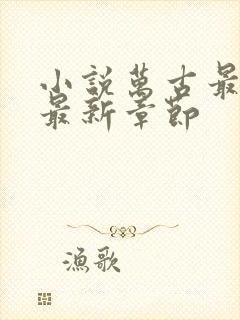 小說萬古最
最新章節
漁歌